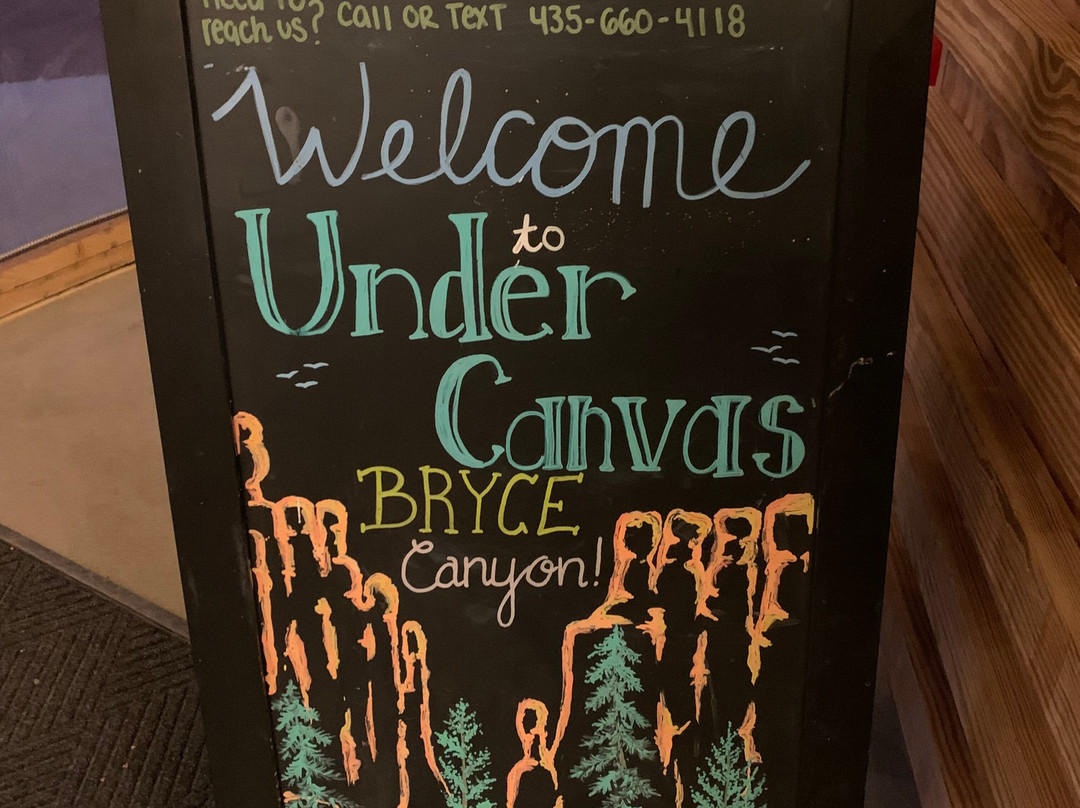 need to?
reach us? Call OR Text 435-660-4118
Welcome
to
Under
Canvas
BRYCE
Canyon!